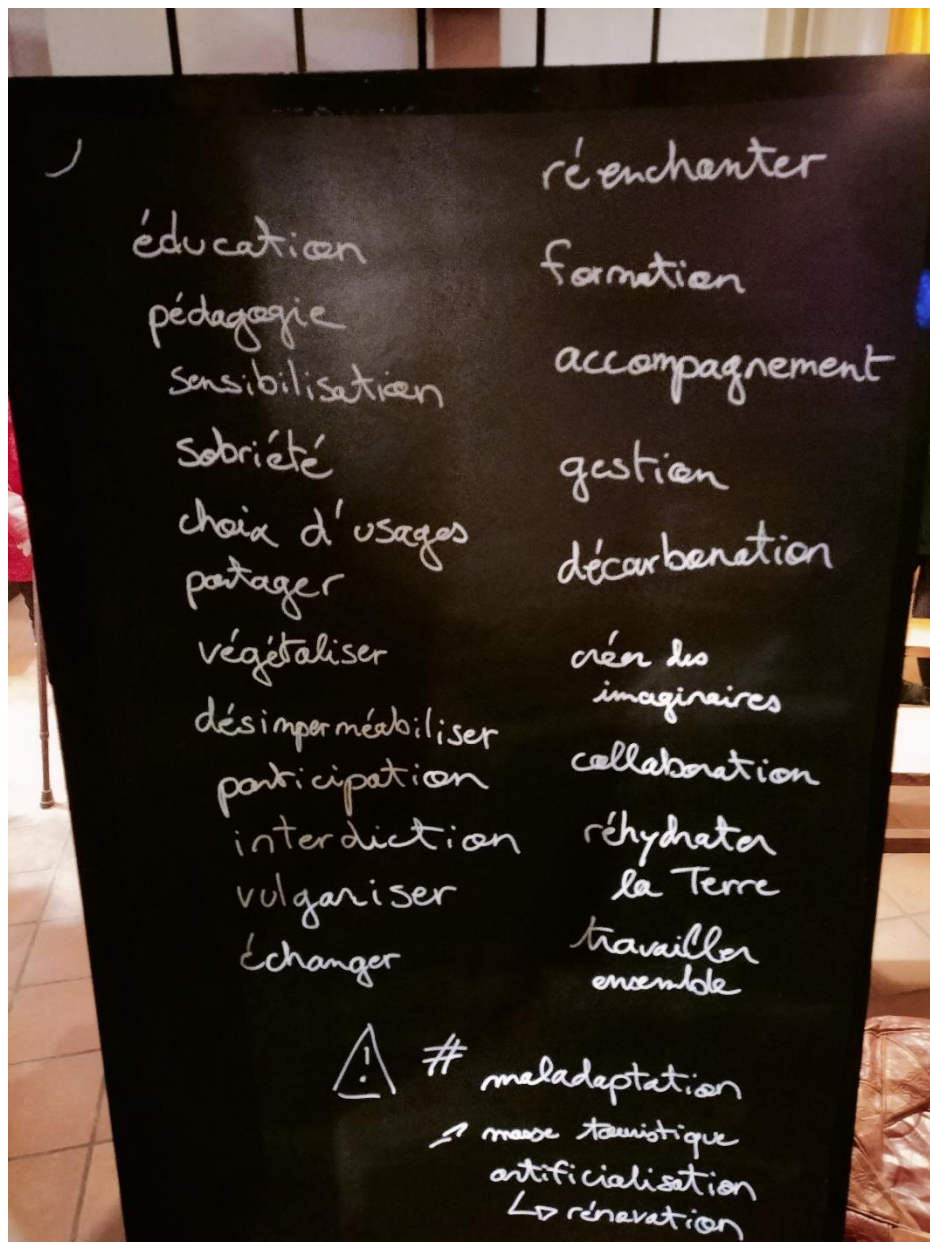 éducation
pédagogie
sensibilisation
sobriété
choix d'usages
partager
végétaliser
désimperméabiliser
participation
interdiction
vulgariser
échanger
réenchanter
formation
accompagnement
gestion
décarbonation
créer des
imaginaires
collaboration
réhydrater
la Terre
travailler
ensemble
⚠ # maladaptation
↗ masse touristique
artificialisation
↳ rénovation